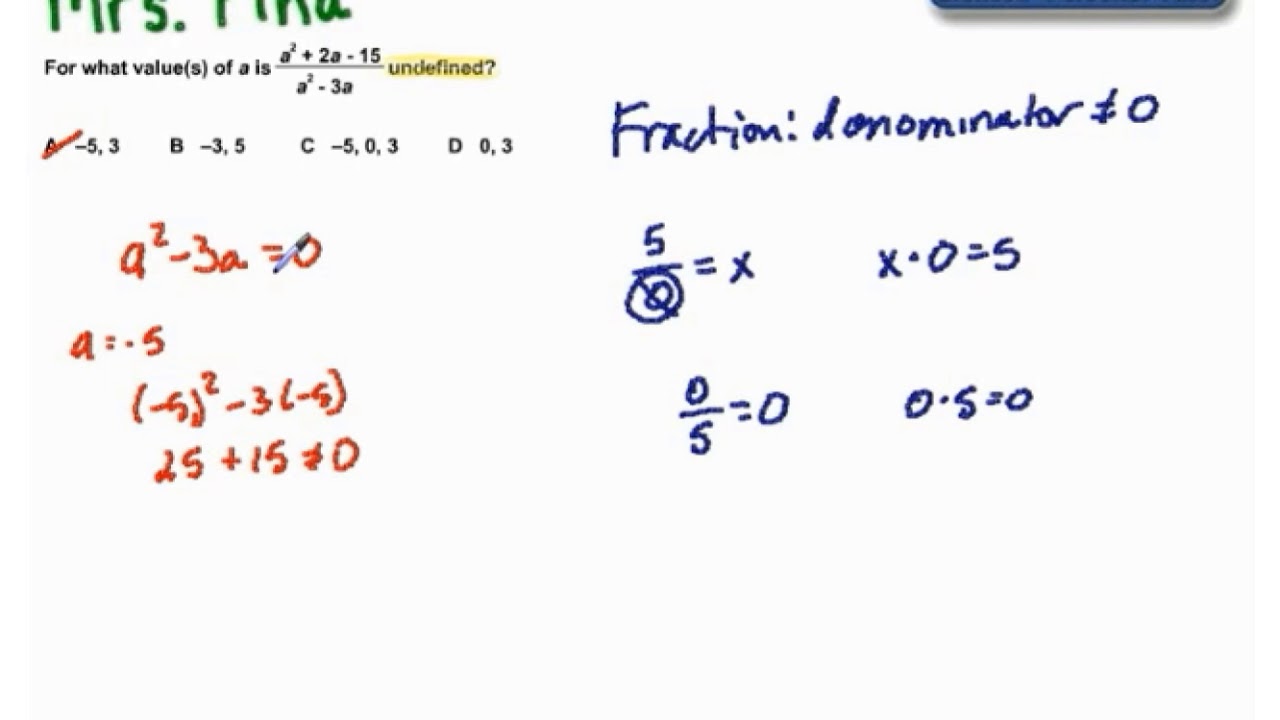 Mrs.
For what value(s) of a is a² + 2a - 15 / a² - 3a undefined?
A –5, 3 B –3, 5 C –5, 0, 3 D 0, 3
Fraction: donominator ≠ 0
a² - 3a = 0
5/0 = x x · 0 = 5
a = -5
(-5)² - 3(-5)
0/5 = 0 0 · 5 = 0
25 + 15 ≠ 0